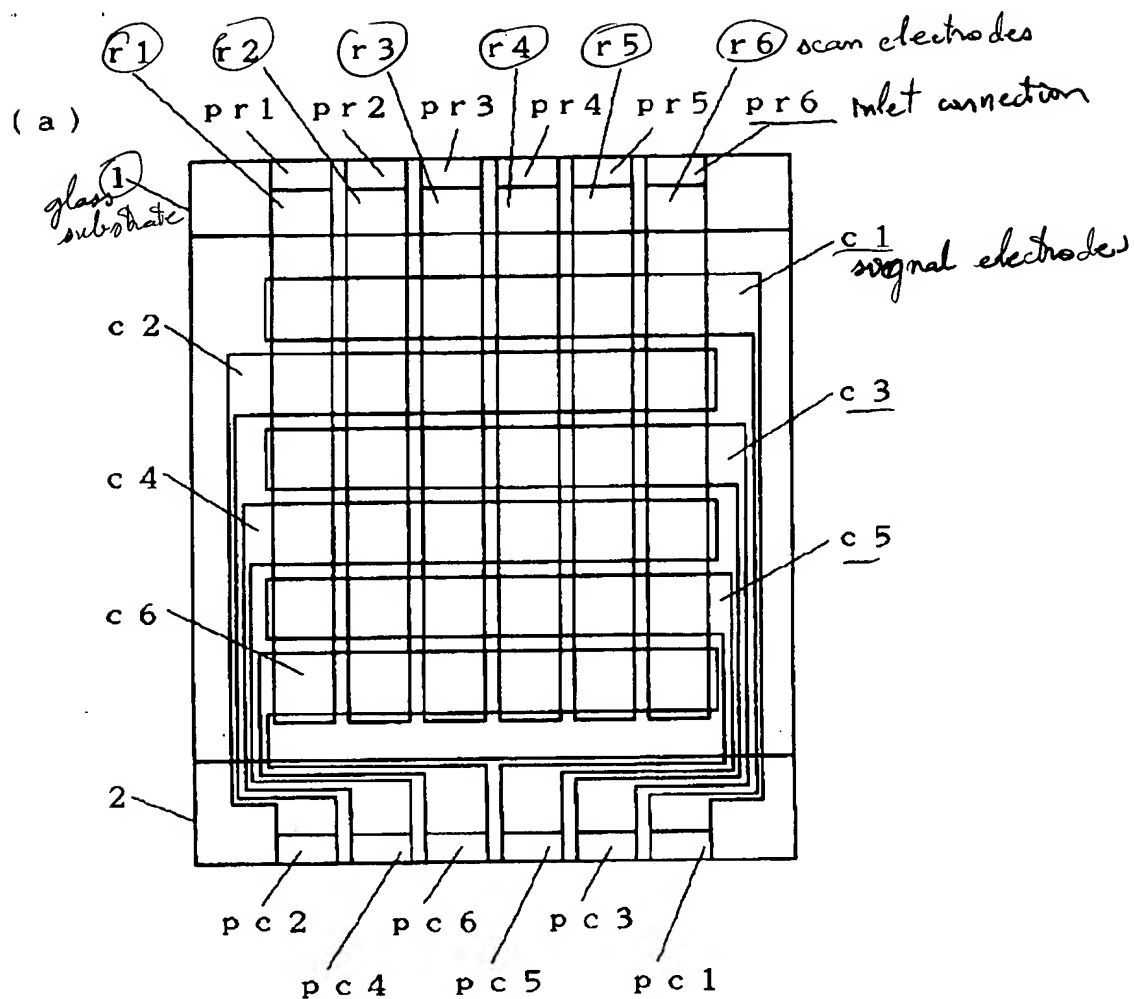 r1 r2 r3 r4 r5 r6 scan electrodes
(a) pr1 pr2 pr3 pr4 pr5 pr6 inlet connection
glass 1
substrate
c1
signal electrodes
c2
c3
c4
c5
c6
2
pc2 pc6 pc3
pc4 pc5 pc1